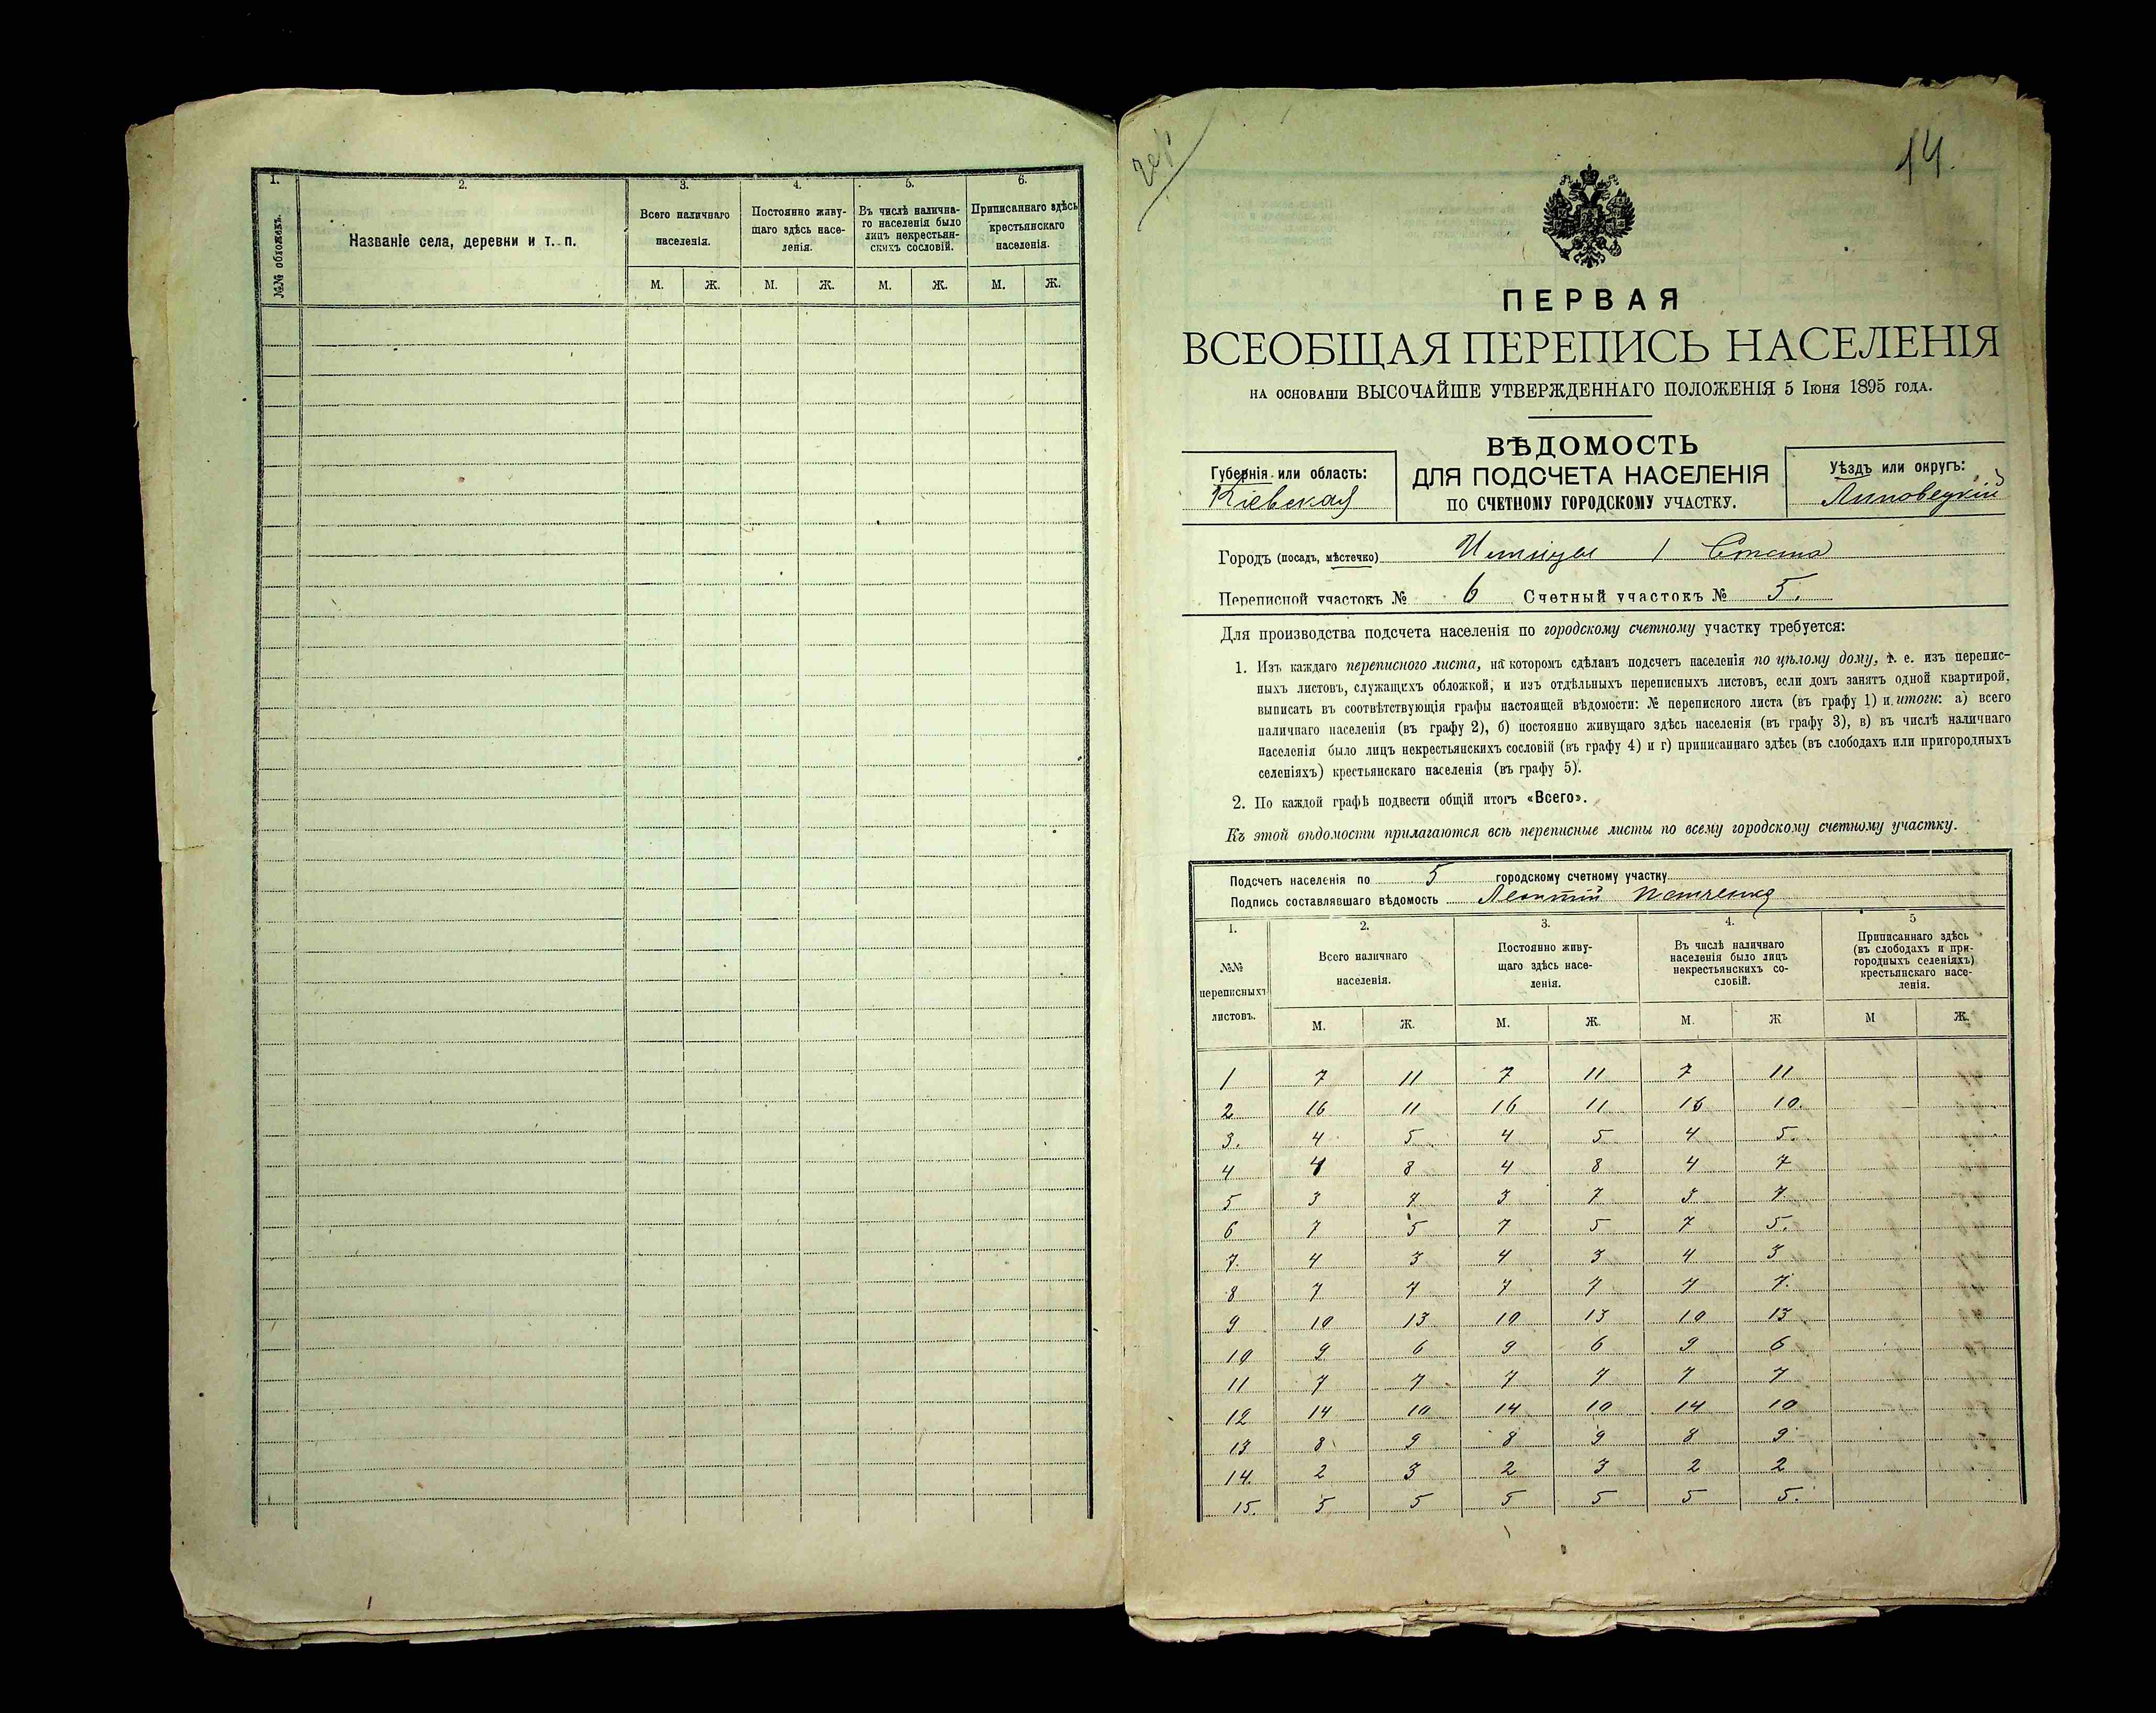 1. 2. 3. 4. 5. 6.
№№ обложекъ.
Названіе села, деревни и т. п.
Всего наличнаго населенія.
Постоянно живу-
щаго здѣсь насе-
ленія.
Въ числѣ налична-
го населенія было
лицъ некрестьян-
скихъ сословій.
Приписаннаго здѣсь
крестьянскаго
населенія.
М. Ж. М. Ж. М. Ж. М. Ж.
14.
ПЕРВАЯ
ВСЕОБЩАЯ ПЕРЕПИСЬ НАСЕЛЕНІЯ
НА ОСНОВАНІИ ВЫСОЧАЙШЕ УТВЕРЖДЕННАГО ПОЛОЖЕНІЯ 5 Іюня 1895 ГОДА.
Губернія или область:
Кіевская
ВѢДОМОСТЬ
ДЛЯ ПОДСЧЕТА НАСЕЛЕНІЯ
ПО СЧЕТНОМУ ГОРОДСКОМУ УЧАСТКУ.
Уѣздъ или округъ:
Липовецкій
Городъ (посадъ, мѣстечко)
Переписной участокъ № 6 Счетный участокъ № 5.
Для производства подсчета населенія по городскому счетному участку требуется:
1. Изъ каждаго переписного листа, на которомъ сдѣланъ подсчетъ населенія по цѣлому дому, т. е. изъ перепис-
ныхъ листовъ, служащихъ обложкой, и изъ отдѣльныхъ переписныхъ листовъ, если домъ занятъ одной квартирой,
выписать въ соотвѣтствующія графы настоящей вѣдомости: № переписного листа (въ графу 1) и итоги: а) всего
наличнаго населенія (въ графу 2), б) постоянно живущаго здѣсь населенія (въ графу 3), в) въ числѣ наличнаго
населенія было лицъ некрестьянскихъ сословій (въ графу 4) и г) приписаннаго здѣсь (въ слободахъ или пригородныхъ
селеніяхъ) крестьянскаго населенія (въ графу 5).
2. По каждой графѣ подвести общій итогъ «Всего».
Къ этой вѣдомости прилагаются всѣ переписные листы по всему городскому счетному участку.
Подсчетъ населенія по 5 городскому счетному участку
Подпись составлявшаго вѣдомость Леонтій
1. 2. 3. 4. 5
№№
переписныхъ
листовъ.
Всего наличнаго
населенія.
Постоянно живу-
щаго здѣсь насе-
ленія.
Въ числѣ наличнаго
населенія было лицъ
некрестьянскихъ со-
словій.
Приписаннаго здѣсь
(въ слободахъ и при-
городныхъ селеніяхъ)
крестьянскаго насе-
ленія.
М. Ж. М. Ж. М. Ж М Ж.
1 7 11 7 11 7 11
2 16 11 16 11 16 10.
3. 4 5 4 5 4 5.
4 4 8 4 8 4 7
5 3 7 3 7 3 7
6 7 5 7 5 7 5.
7. 4 3 4 3 4 3
8 7 7 7 7 7 7.
9 10 13 10 13 10 13
10 9 6 9 6 9 6
11 7 7 7 7 7 7
12 14 10 14 10 14 10
13 8 9 8 9 8 9
14. 2 3 2 3 2 2
15. 5 5 5 5 5 5.